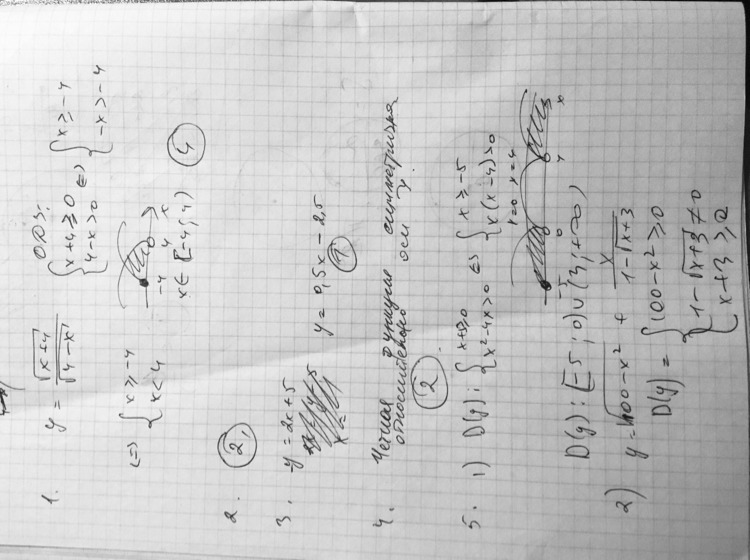 1. y = √(x+4) / √(4-x) ОДЗ: { x+4 ≥ 0 4-x > 0 ⇔ { x ≥ -4 -x > -4
⇔ { x ≥ -4 x < 4
-4 4 x
x ∈ [-4; 4) ④
2. ②,
3. y = 2x + 5 y = 0,5x - 2,5
①
4. Четная функция симметрична
относительно оси y.
②
5. 1) D(y): { x+5 ≥ 0 x²-4x > 0 ⇔ { x ≥ -5 x(x-4) > 0
x=0 x=4
-5 0 4 x
D(y): [-5; 0) ∪ (4; +∞)
2) y = √(100-x²) + x / (1-√(x+3))
D(y) = { 100-x² ≥ 0 1-√(x+3) ≠ 0 x+3 ≥ 0